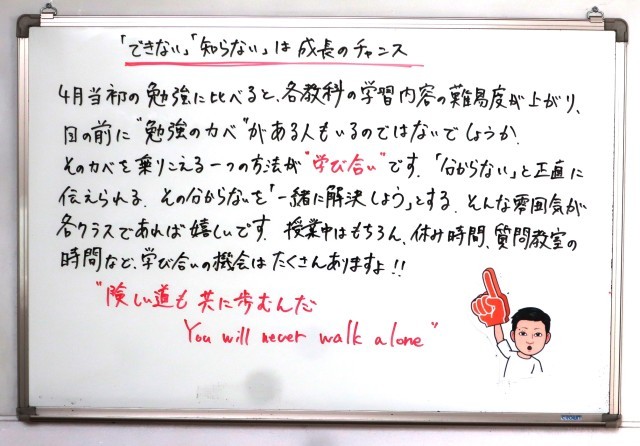 「できない」「知らない」は成長のチャンス
4月当初の勉強に比べると、各教科の学習内容の難易度が上がり、
目の前に"勉強のカベ"がある人もいるのではないでしょうか。
そのカベを乗りこえる一つの方法が"学び合い"です。「分からない」と正直に
伝えられる。その分からないを「一緒に解決しよう」とする。そんな雰囲気が
各クラスであれば嬉しいです。授業中はもちろん、休み時間、質問教室の
時間など、学び合いの機会はたくさんありますよ!!
"険しい道も共に歩むんだ
You will never walk alone"